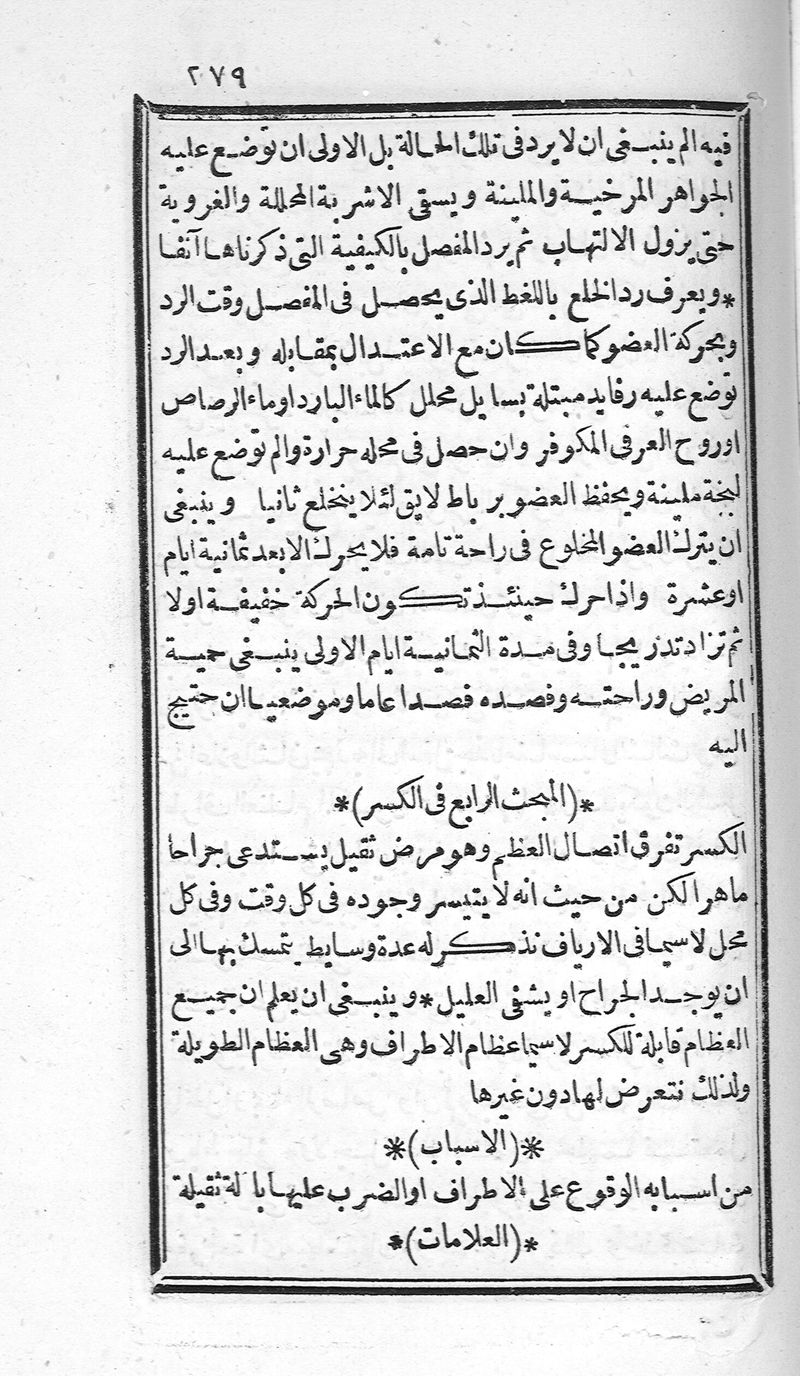 ٢٧٩
فيه الم ينبغى ان لا يرد فى تلك الحالة بل الاولى ان توضع عليه
الجواهر المرخية والملينة ويسقى الاشربة المحللة والغروية
حتى يزول الالتهاب ثم يرد المفصل بالكيفية التى ذكرناها آنفا
* ويعرف رد الخلع باللغط الذى يحصل فى المفصل وقت الرد
وبحركة العضو كما كان مع الاعتدال بمقابله وبعد الرد
توضع عليه رفايد مبتلة بسايل محلل كالماء البارد او ماء الرصاص
او روح العرقى المكوفر وان حصل فى محله حرارة والم توضع عليه
لبخة ملينة ويحفظ العضو برباط لايق لئلا ينخلع ثانيا وينبغى
ان يترك العضو المخلوع فى راحة تامة فلا يحرك الا بعد ثمانية ايام
او عشرة واذا حرك حينئذ تكون الحركة خفيفة اولا
ثم تزاد تدريجا وفى مدة الثمانية ايام الاولى ينبغى حمية
المريض وراحته وفصده فصدا عاما وموضعيا ان حتيج
اليه
*(المبحث الرابع فى الكسر)*
الكسر تفرق اتصال العظم وهو مرض ثقيل يستدعى جراحا
ماهرا لكن من حيث انه لا يتيسر وجوده فى كل وقت وفى كل
محل لاسيما فى الارياف نذكر له عدة وسايط يتمسك بها الى
ان يوجد الجراح او يشفى العليل * وينبغى ان يعلم ان جميع
العظام قابلة للكسر لاسيما عظام الاطراف وهى العظام الطويلة
ولذلك نتعرض لها دون غيرها
*(الاسباب)*
من اسبابه الوقوع على الاطراف او الضرب عليها بالة ثقيلة
*(العلامات)*